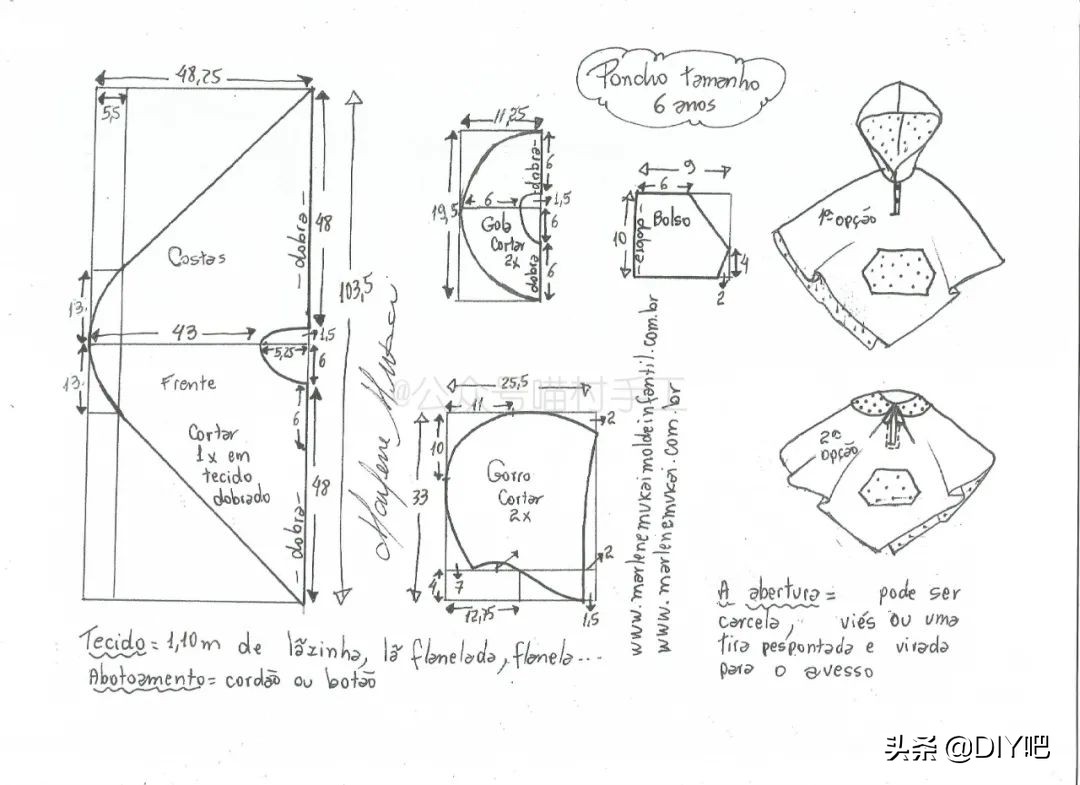 Poncho tamanho
6 anos
48,25
5,5
Costas
- dobra -
48
103,5
13
43
1,5
5,25
6
13
Frente
6
Cortar
1x em
tecido
dobrado
- dobra -
48
11,25
19,5
dobra-
6
6
1,5
6
Gola
Cortar
2x
dobra
6
9
6
10
-dobra-
Bolso
4
2
1ª opção
2ª
opção
@公众号喵村手工
Marlene Mukai
25,5
11
2
10
33
Gorro
Cortar
2x
2
4
7
12,75
1,5
www.marlenemukaimoldeinfantil.com.br
www.marlenemukai.com.br
A abertura = pode ser
carcela, viés ou uma
tira pespontada e virada
para o avesso
Tecido = 1,10m de lãzinha, lã flanelada, flanela...
Abotoamento = cordão ou botão
头条 @DIY吧